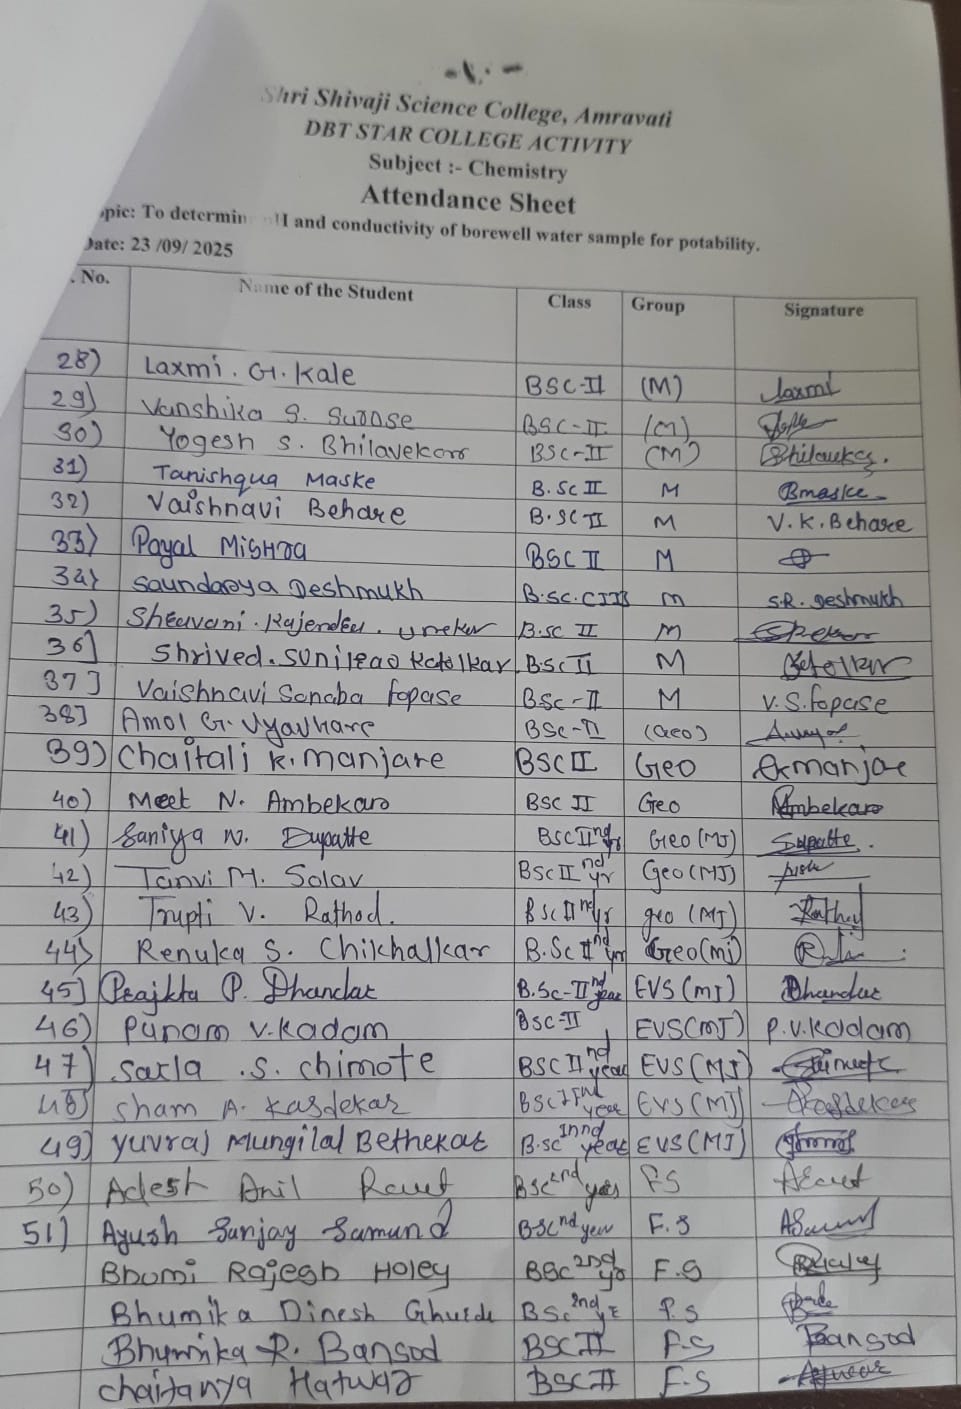 Shri Shivaji Science College, Amravati
DBT STAR COLLEGE ACTIVITY
Subject :- Chemistry
Attendance Sheet
opic: To determin H and conductivity of borewell water sample for potability.
Date: 23 /09/ 2025
. No. Name of the Student Class Group Signature
28) Laxmi . G. Kale BSC-II (M) Laxmi
29) Vanshika S. BSC-II (M)
30) Yogesh S. Bhilavekar BSC-II (M) Bhilavekar.
31) Tanishqua Maske B.SC II M Bmaske
32) Vaishnavi Behare B.SC II M V.K.Behare
33) Payal Mishra BSC II M
34) Saundarya Deshmukh B.SC. M S.R. Deshmukh
35) B.SC II M
36] Shrived.Sunilrao Katolkar. B.Sc II M Katolkar
37] Vaishnavi Sonaba fopase BSc-II M V.S.fopase
38] Amol G. Vyavhare BSc-II (Geo)
39) Chaitali K.manjare BSC II Geo Ckmanjare
40) Meet N. Ambekar BSC II Geo Ambekar
41) Saniya N. Dupatte BSC IInd yr Geo(MJ) Dupatte.
42) Tanvi M. Solav BSC II nd yr Geo(MJ)
43) Trupti V. Rathod. BSc IInd yr geo (MJ) Rathod
44) Renuka S. Chikhalkar B.Sc IInd yr Geo(mi)
45] Prajkta P. Dhandar B.Sc-IInd year EVS(mJ) Dhandar
46) Punam V.Kadam BSC-II EVS(mJ) P.V.Kadam
47) Sarla .S. chimote BSC IInd year EVS(MJ)
48) Sham A. Kasdekar BSC IInd year EVS(MJ) Akasdekar
49) yuvraj Mungilal Bethekar B.SC IInnd year EVS(MJ)
50) Adesh Anil Raut BSC 2nd year F.S ARaut
51) Ayush Sanjay Samund BSC nd year F.S
Bhumi Rajesh Holey BSC 2nd yr F.S
Bhumika Dinesh BSc 2nd F.S
Bhumika R. Bansod BSC II F.S Bansod
chaitanya Hatwar BSC II F.S